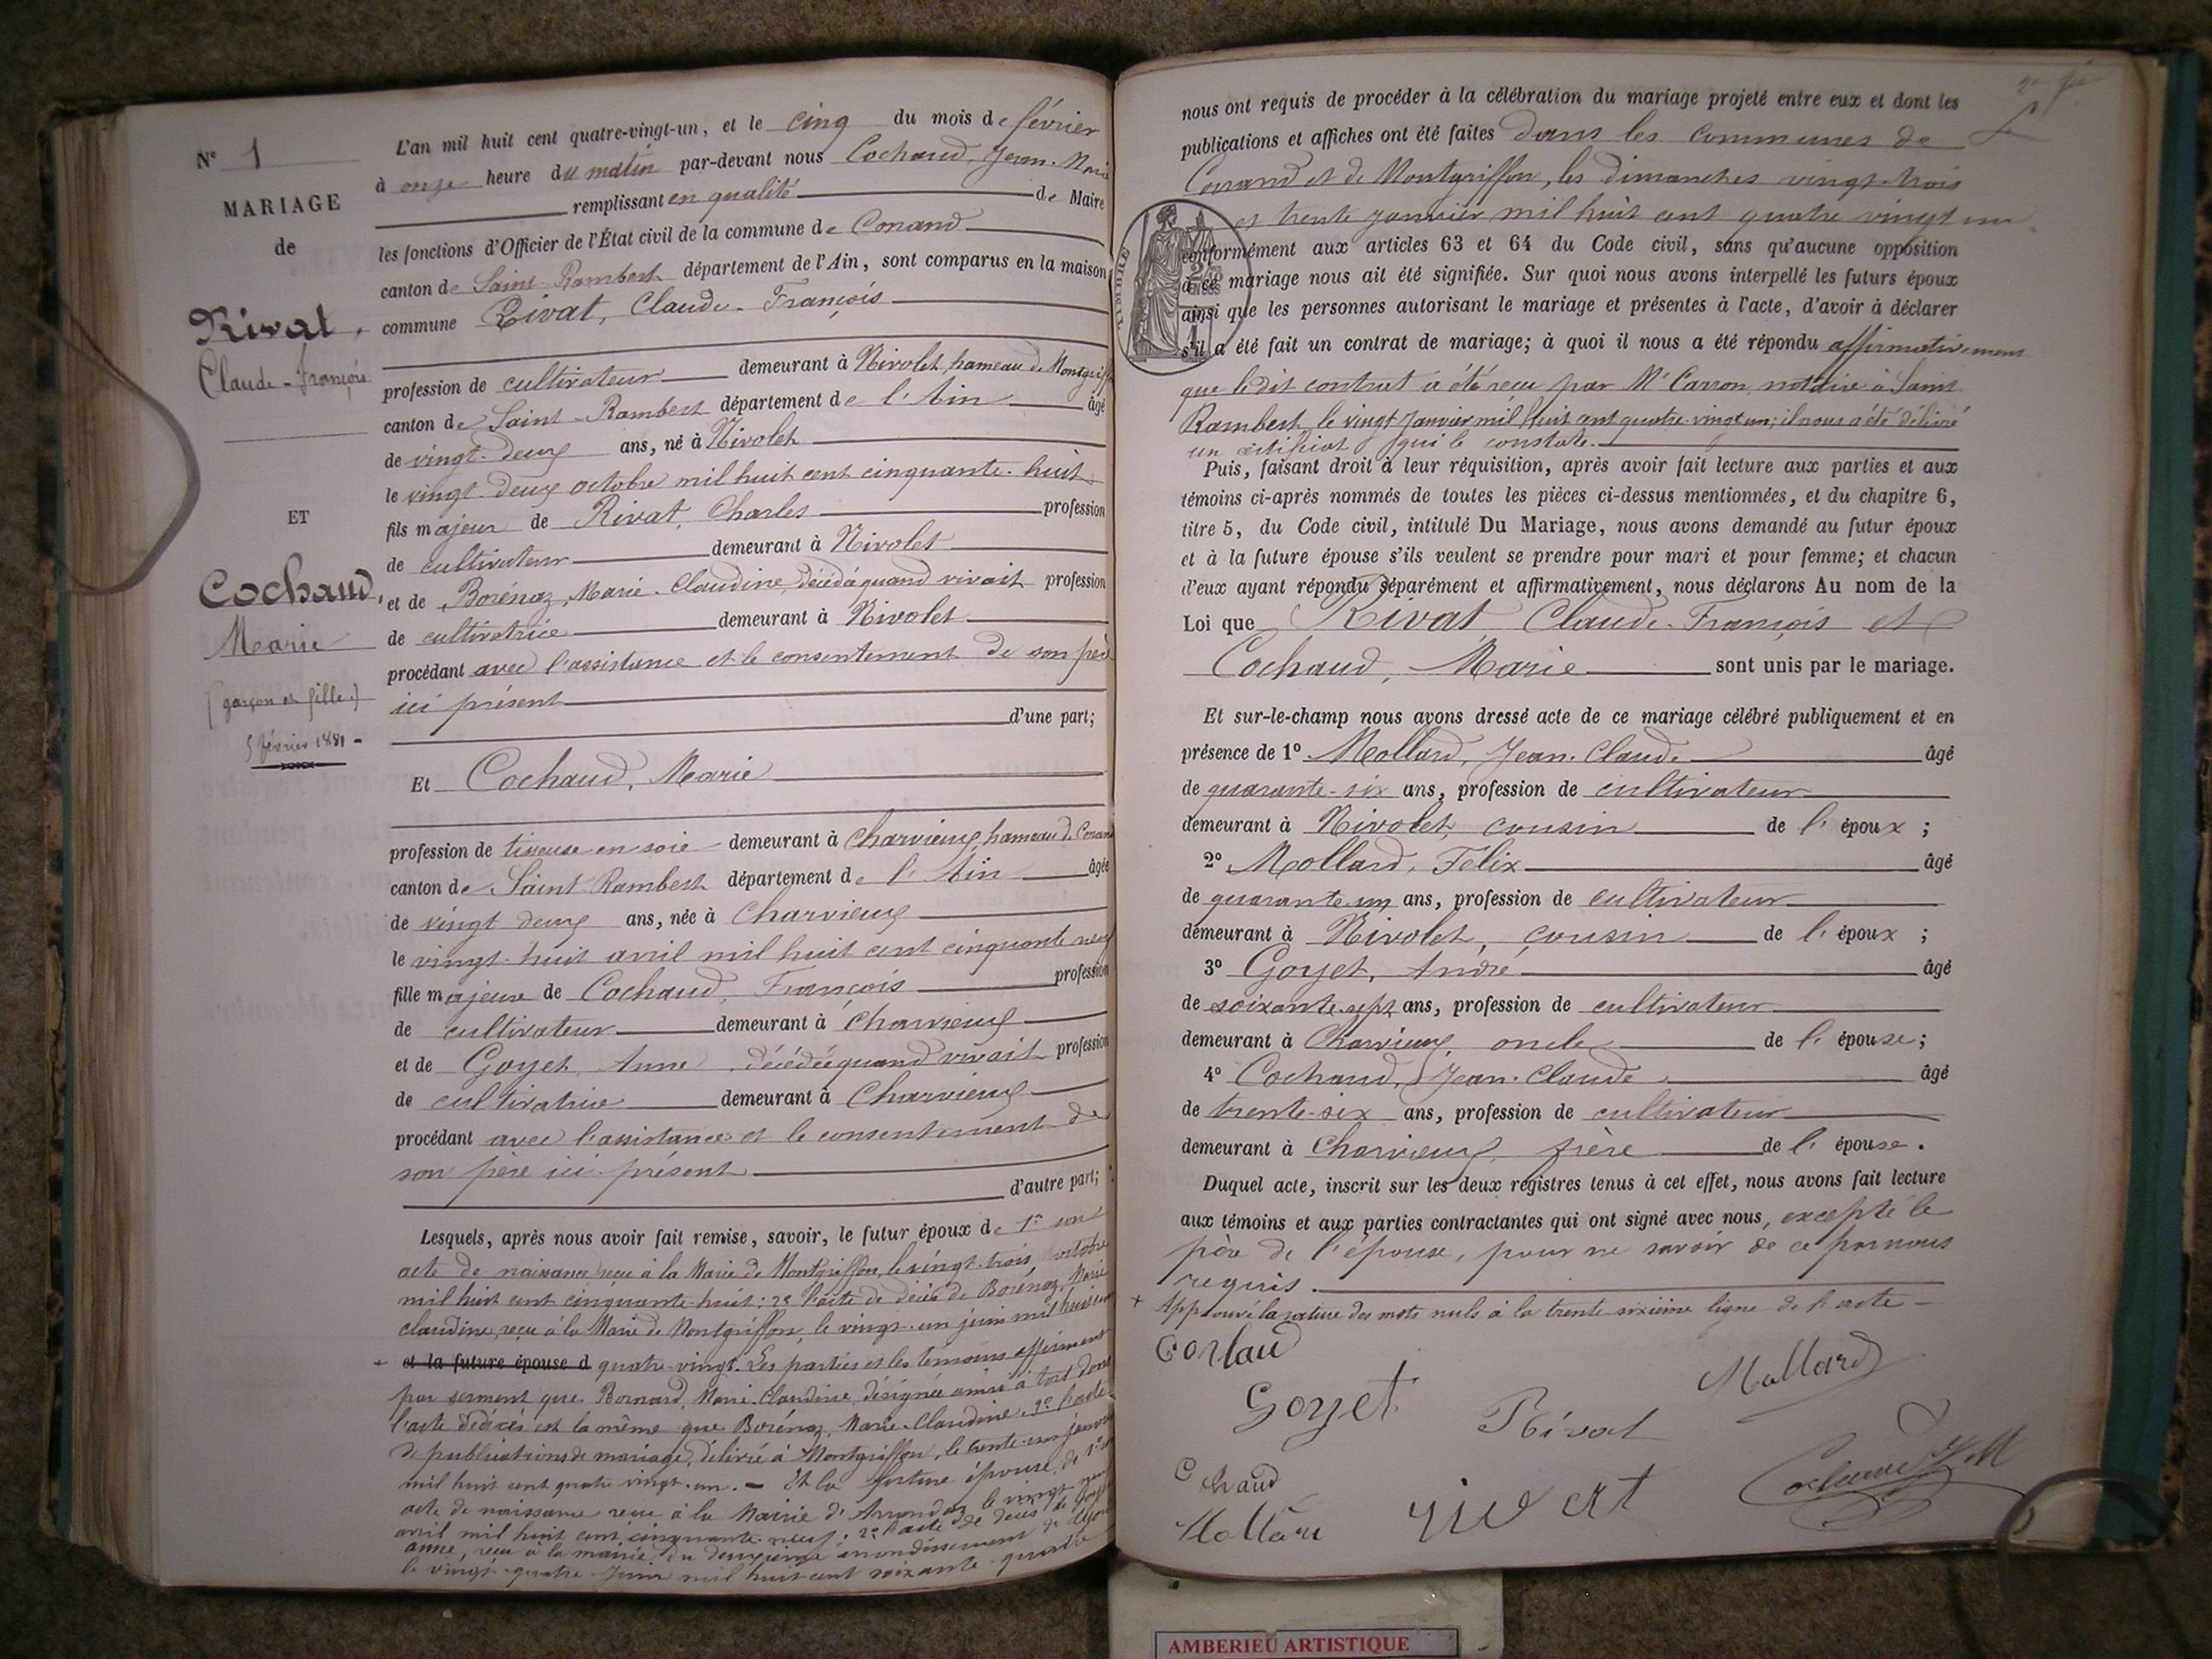 N° 1
MARIAGE
de
Rivat,
Claude-François
ET
Cochaud,
Marie
(garçon et fille)
5 février 1881 -
L'an mil huit cent quatre-vingt-un, et le cinq du mois de février
à onze heure du matin par-devant nous Cochaud, Jean-Marie
remplissant en qualité de Maire
les fonctions d'Officier de l'État civil de la commune de Conand
canton de Saint-Rambert département de l'Ain, sont comparus en la maison
commune Rivat, Claude-François
profession de cultivateur demeurant à Nivolet, hameau de Montgriffon
canton de Saint-Rambert département de l'Ain âgé
de vingt-deux ans, né à Nivolet
le vingt-deux octobre mil huit cent cinquante-huit
fils majeur de Rivat, Charles profession
de cultivateur demeurant à Nivolet
et de Borénaz, Marie-Claudine, décédé quand vivait profession
de cultivatrice demeurant à Nivolet
procédant avec l'assistance et le consentement de son père
ici présent
d'une part;
Et Cochaud, Marie
profession de tisseuse en soie demeurant à Charvieux, hameau de Conand
canton de Saint Rambert département de l'Ain âgée
de vingt deux ans, née à Charvieux
le vingt-huit avril mil huit cent cinquante neuf
fille majeure de Cochaud, François profession
de cultivateur demeurant à Charvieux
et de Goyet, Anne, décédée quand vivait profession
de cultivatrice demeurant à Charvieux
procédant avec l'assistance et le consentement de
son père ici présent
d'autre part;
Lesquels, après nous avoir fait remise, savoir, le futur époux de 1° son
acte de naissance reçu à la Mairie de Montgriffon, le vingt-trois octobre
mil huit cent cinquante huit; 2° l'acte de décès de Borénaz, Marie
Claudine, reçu à la Mairie de Montgriffon, le vingt-un juin mil huit cent
+ et la future épouse d quatre-vingt. Les parties et les témoins affirment
par serment que Bornard, Marie-Claudine, désignée ainsi à tort dans
l'acte décès est la même que Borénaz, Marie-Claudine. 3° l'acte
de publications de mariage, délivré à Montgriffon, le trente-un janvier
mil huit cent quatre vingt-un. - Et la future épouse, de 1° son
acte de naissance reçu à la Mairie d'Arandaz le vingt neuf
avril mil huit cent cinquante-neuf; 2° l'acte de décès de Goyet
anne, reçu à la mairie du deuxième arrondissement de Lyon
le vingt-quatre Juin mil huit cent soixante-quatre
nous ont requis de procéder à la célébration du mariage projeté entre eux et dont les
publications et affiches ont été faites dans les communes de
Conand et de Montgriffon, les dimanches vingt-trois
et trente janvier mil huit cent quatre vingt un
conformément aux articles 63 et 64 du Code civil, sans qu'aucune opposition
à ce mariage nous ait été signifiée. Sur quoi nous avons interpellé les futurs époux
ainsi que les personnes autorisant le mariage et présentes à l'acte, d'avoir à déclarer
s'il a été fait un contrat de mariage; à quoi il nous a été répondu affirmativement
que ledit contrat a été reçu par Me Carron, notaire à Saint
Rambert, le vingt Janvier mil huit cent quatre-vingt un; il nous a été délivré
un certificat qui le constate.
Puis, faisant droit à leur réquisition, après avoir fait lecture aux parties et aux
témoins ci-après nommés de toutes les pièces ci-dessus mentionnées, et du chapitre 6,
titre 5, du Code civil, intitulé Du Mariage, nous avons demandé au futur époux
et à la future épouse s'ils veulent se prendre pour mari et pour femme; et chacun
d'eux ayant répondu séparément et affirmativement, nous déclarons Au nom de la
Loi que Rivat Claude-François et
Cochaud, Marie sont unis par le mariage.
Et sur-le-champ nous avons dressé acte de ce mariage célébré publiquement et en
présence de 1° Mollard, Jean-Claude âgé
de quarante-six ans, profession de cultivateur
demeurant à Nivolet, cousin de l'époux;
2° Mollard, Félix âgé
de quarante-un ans, profession de cultivateur
demeurant à Nivolet, cousin de l'époux;
3° Goyet, André âgé
de soixante-sept ans, profession de cultivateur
demeurant à Charvieux, oncle de l'épouse;
4° Cochaud, Jean-Claude âgé
de trente-six ans, profession de cultivateur
demeurant à Charvieux, frère de l'épouse.
Duquel acte, inscrit sur les deux registres tenus à cet effet, nous avons fait lecture
aux témoins et aux parties contractantes qui ont signé avec nous, excepté le
père de l'épouse, pour ne savoir de ce par nous
requis.
+ Approuvé la rature des mots nuls à la trente-sixième ligne de l'acte -
Goyet
Rivat
Mollard
TIMBRE
AMBERIEU ARTISTIQUE